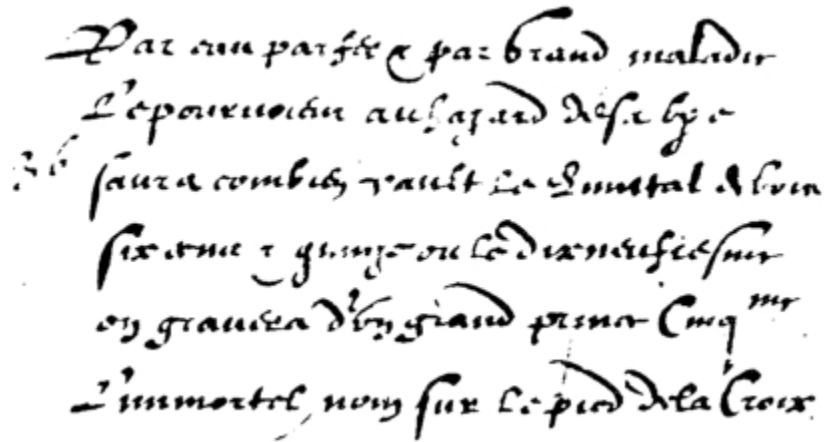 Par eau par fer & par grand maladie
Le pourvoieur au hazard de sa vye
saura combien vault le Quintal du bois
six cens & quinze ou le dixneufiesme
on gravera d'un grand prince Cinq^me
L'immortel nom sur le pied de la Croix